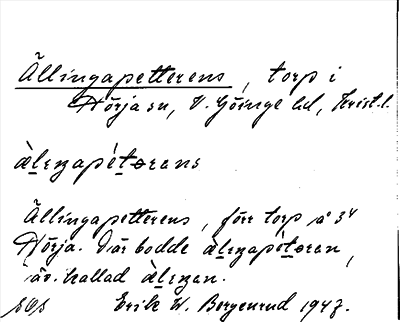 Ällingapetterens, torp i
Nörja sn, V. Göinge hd, Krist. l.
àlıŋapétərəns
Ällingapetterens, förr torp å 34
Nörja. Där bodde àlıŋapétərən,
äv. kallad àlıŋən.
Erik W. Bergenrud 1947.